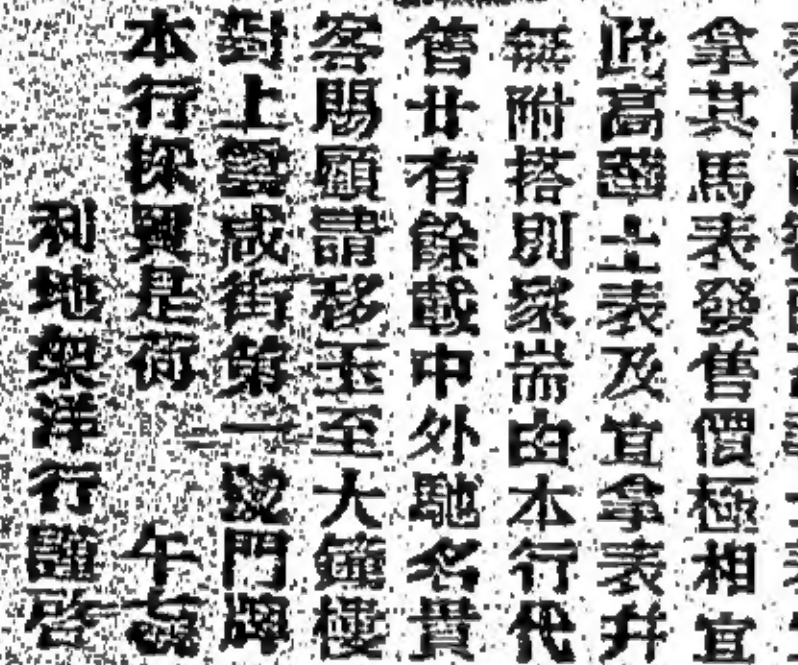 拿其馬表發售價極相宜
此高等土表及宜拿表并
無附搭別家耑由本行代
管廿有餘載中外馳名貴
客賜顧請移玉至大鐘樓
對上雲咸街第一號門牌
本行採買是荷 午
利地架洋行謹啓